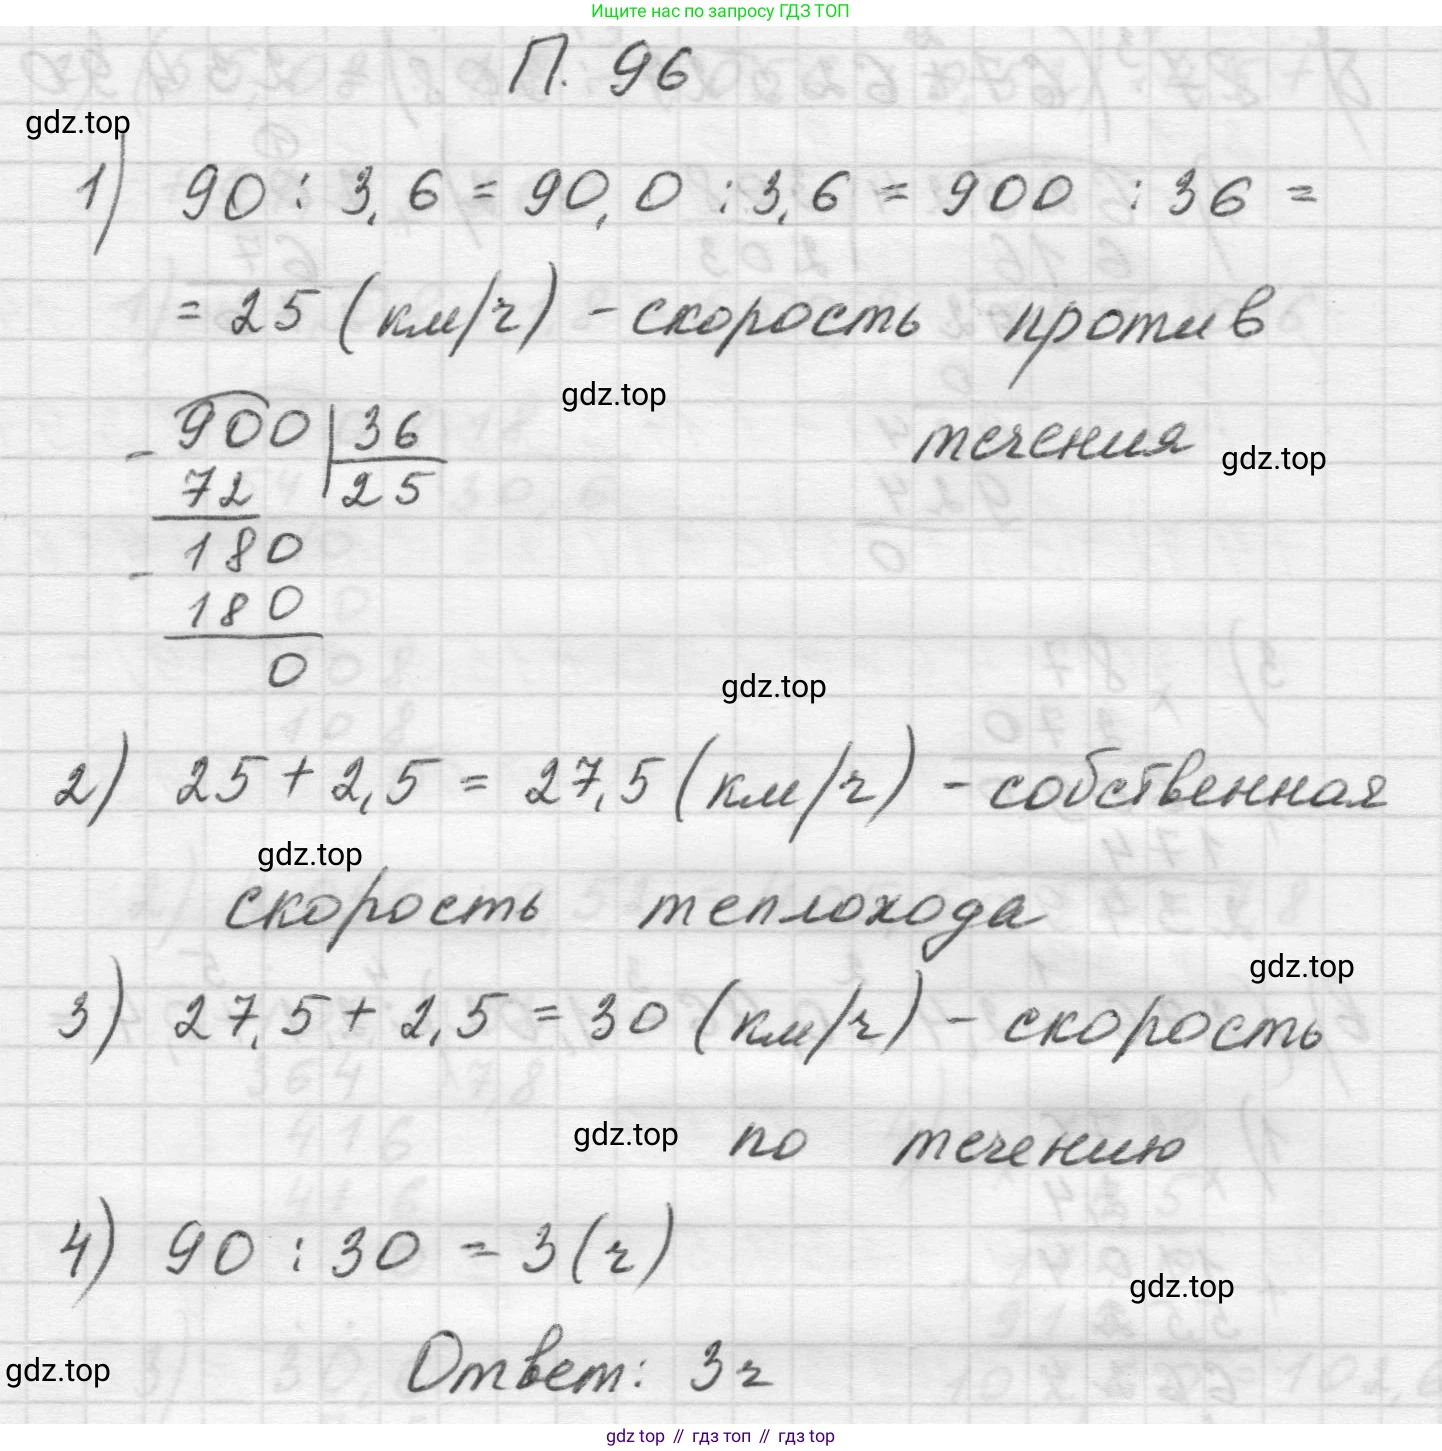 Ищите нас по запросу ГДЗ ТОП
П. 96
gdz.top
1) 90 : 3,6 = 90,0 : 3,6 = 900 : 36 =
= 25 (км/ч) - скорость против
gdz.top
течения
gdz.top
- 900 | 36
72 | 25
- 180
180
0
gdz.top
2) 25 + 2,5 = 27,5 (км/ч) - собственная
gdz.top
скорость теплохода
gdz.top
3) 27,5 + 2,5 = 30 (км/ч) - скорость
gdz.top
по течению
4) 90 : 30 = 3 (ч)
gdz.top
Ответ: 3 ч
gdz.top
gdz top // гдз топ // гдз top